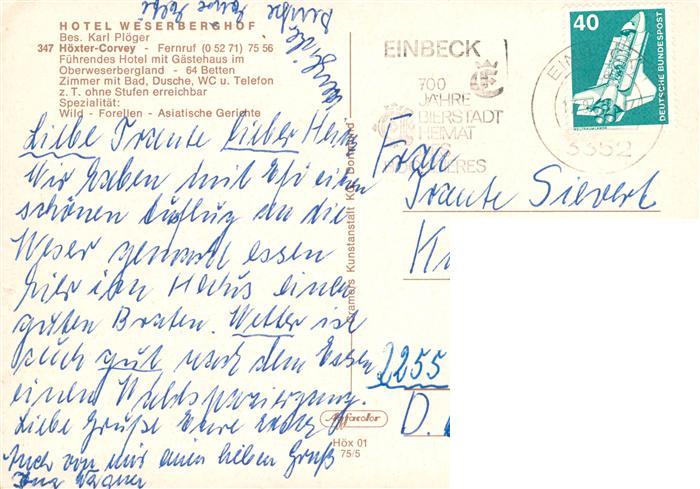 HOTEL WESERBERGHOF
Bes. Karl Plöger
347 Höxter-Corvey - Fernruf (0 52 71) 75 56
Führendes Hotel mit Gästehaus im
Oberweserbergland - 64 Betten
Zimmer mit Bad, Dusche, WC u. Telefon
z. T. ohne Stufen erreichbar
Spezialität:
Wild - Forellen - Asiatische Gerichte
Liebe Traute Lieber Hein
Wir haben mit Efi einen
schönen Ausflug an die
Weser gemacht essen
hier im Haus einen
guten Braten. Wetter ist
auch gut nach dem Essen
einen Waldspaziergang.
Liebe Grüße Eure
Auch von mir einen lieben Gruß
Wagner
Cramers Kunstanstalt KG, Dortmund
Agfacolor
Höx 01
75/5
EINBECK
700
JAHRE
BIERSTADT
HEIMAT
DES
BIERES
40
DEUTSCHE BUNDESPOST
3352
Frau
Traute Sievert
2255
D.